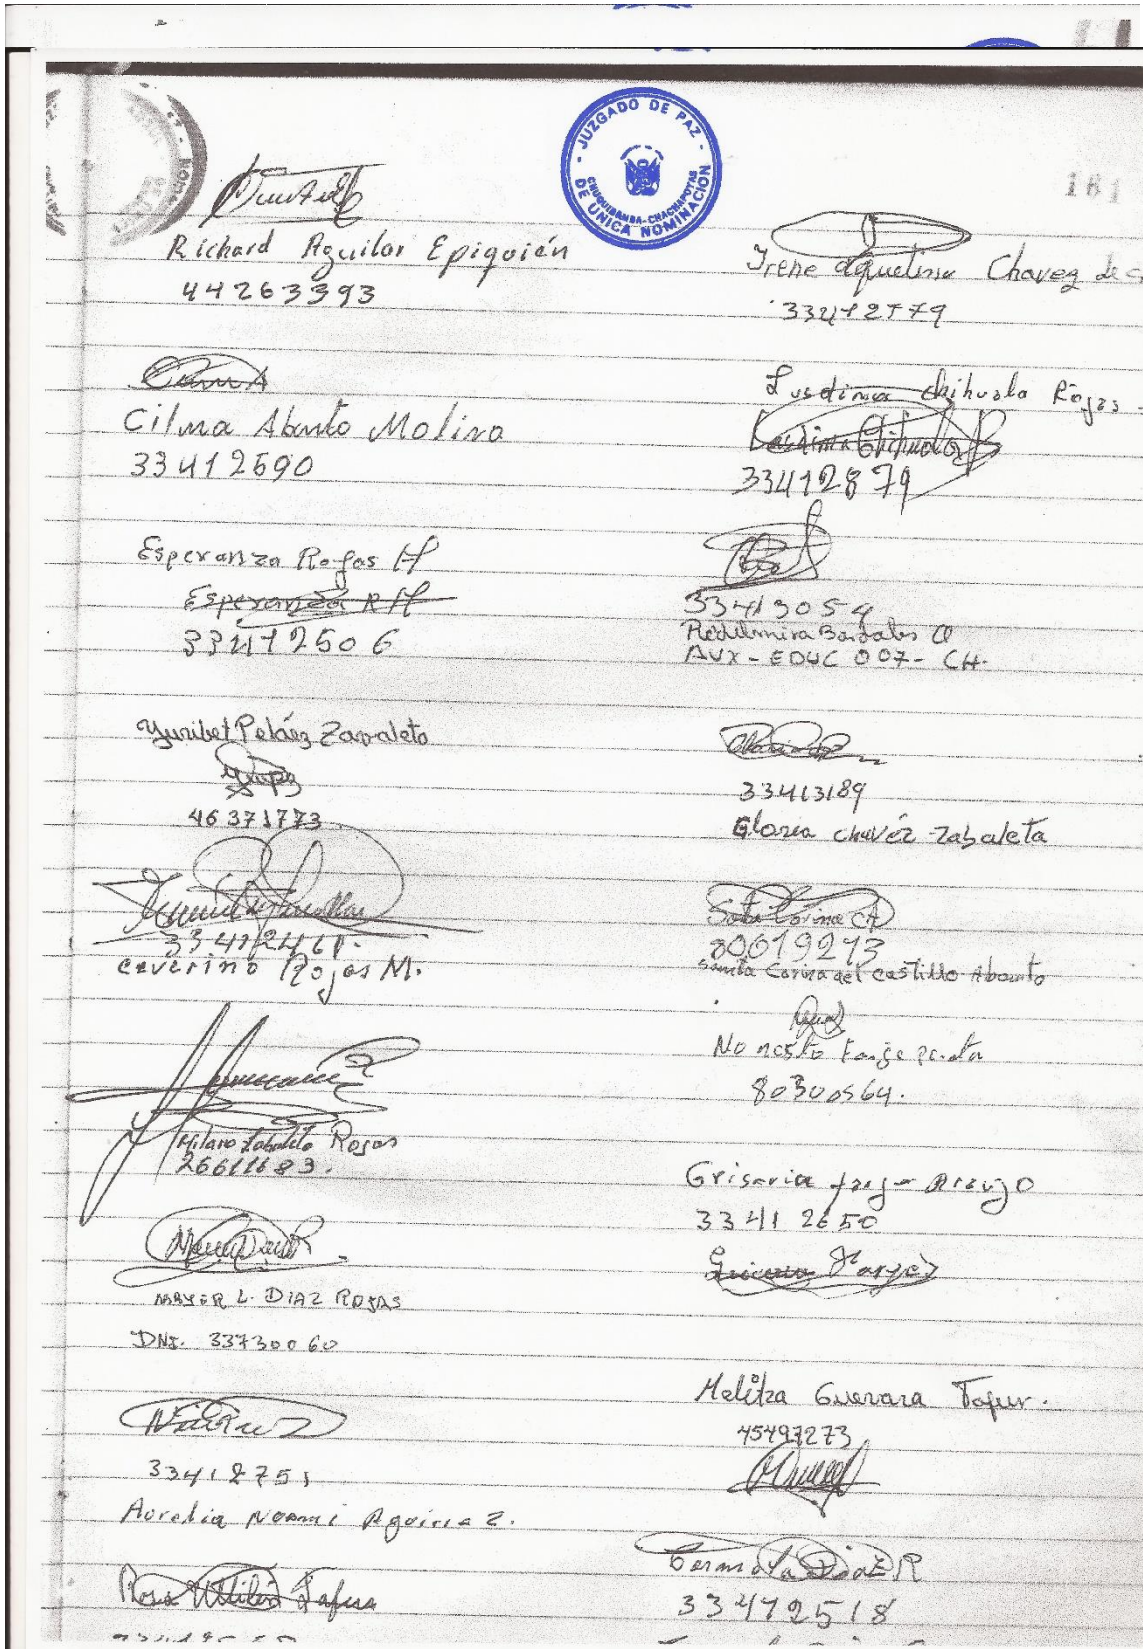 JUZGADO DE PAZ
CHUQUIBAMBA-CHACHAPOYAS
DE UNICA NOMINACION
181
Richard Aguilar Epiquién
44263393
Cilma Abanto Molina
33412690
Esperanza Rojas H
Esperanza R H
33412506
Yuribet Peláez Zavaleta
46371773
Ceverino Rojas M.
Milano Zabaleta Rojas
26611683.
MAYER L. DIAZ ROJAS
DNI. 33730060
33412751
Aurelia Noemi Aguirre Z.
Rosa Tafur
Irene Aquelina Chavez de
Lusdima Chihuala Rojas
Lusdima Chihuala
33412879
33413054
Bardales
AUX - EDUC 007 - CH.
33413189
Gloria Chavéz Zabaleta
80619273
Santa Corina del Castillo Abanto
80300564.
Griseria Araujo
33412650
Melitza Guevara Tafur.
45497273
Diaz R
33412518